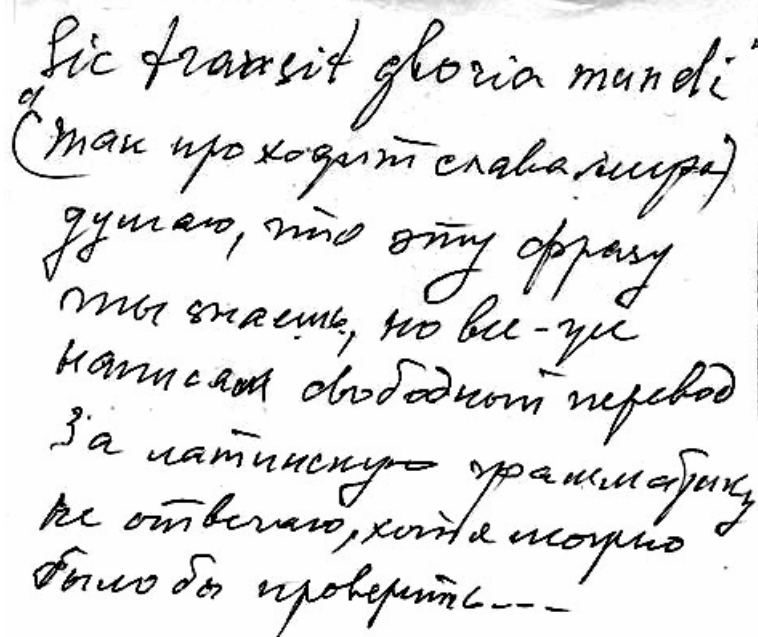 "Sic transit gloria mundi"
(так проходит слава мира)
думаю, что эту фразу
ты знаешь, но все-же
написал свободный перевод
За латинскую грамматику
не отвечаю, хотя можно
было бы проверить---